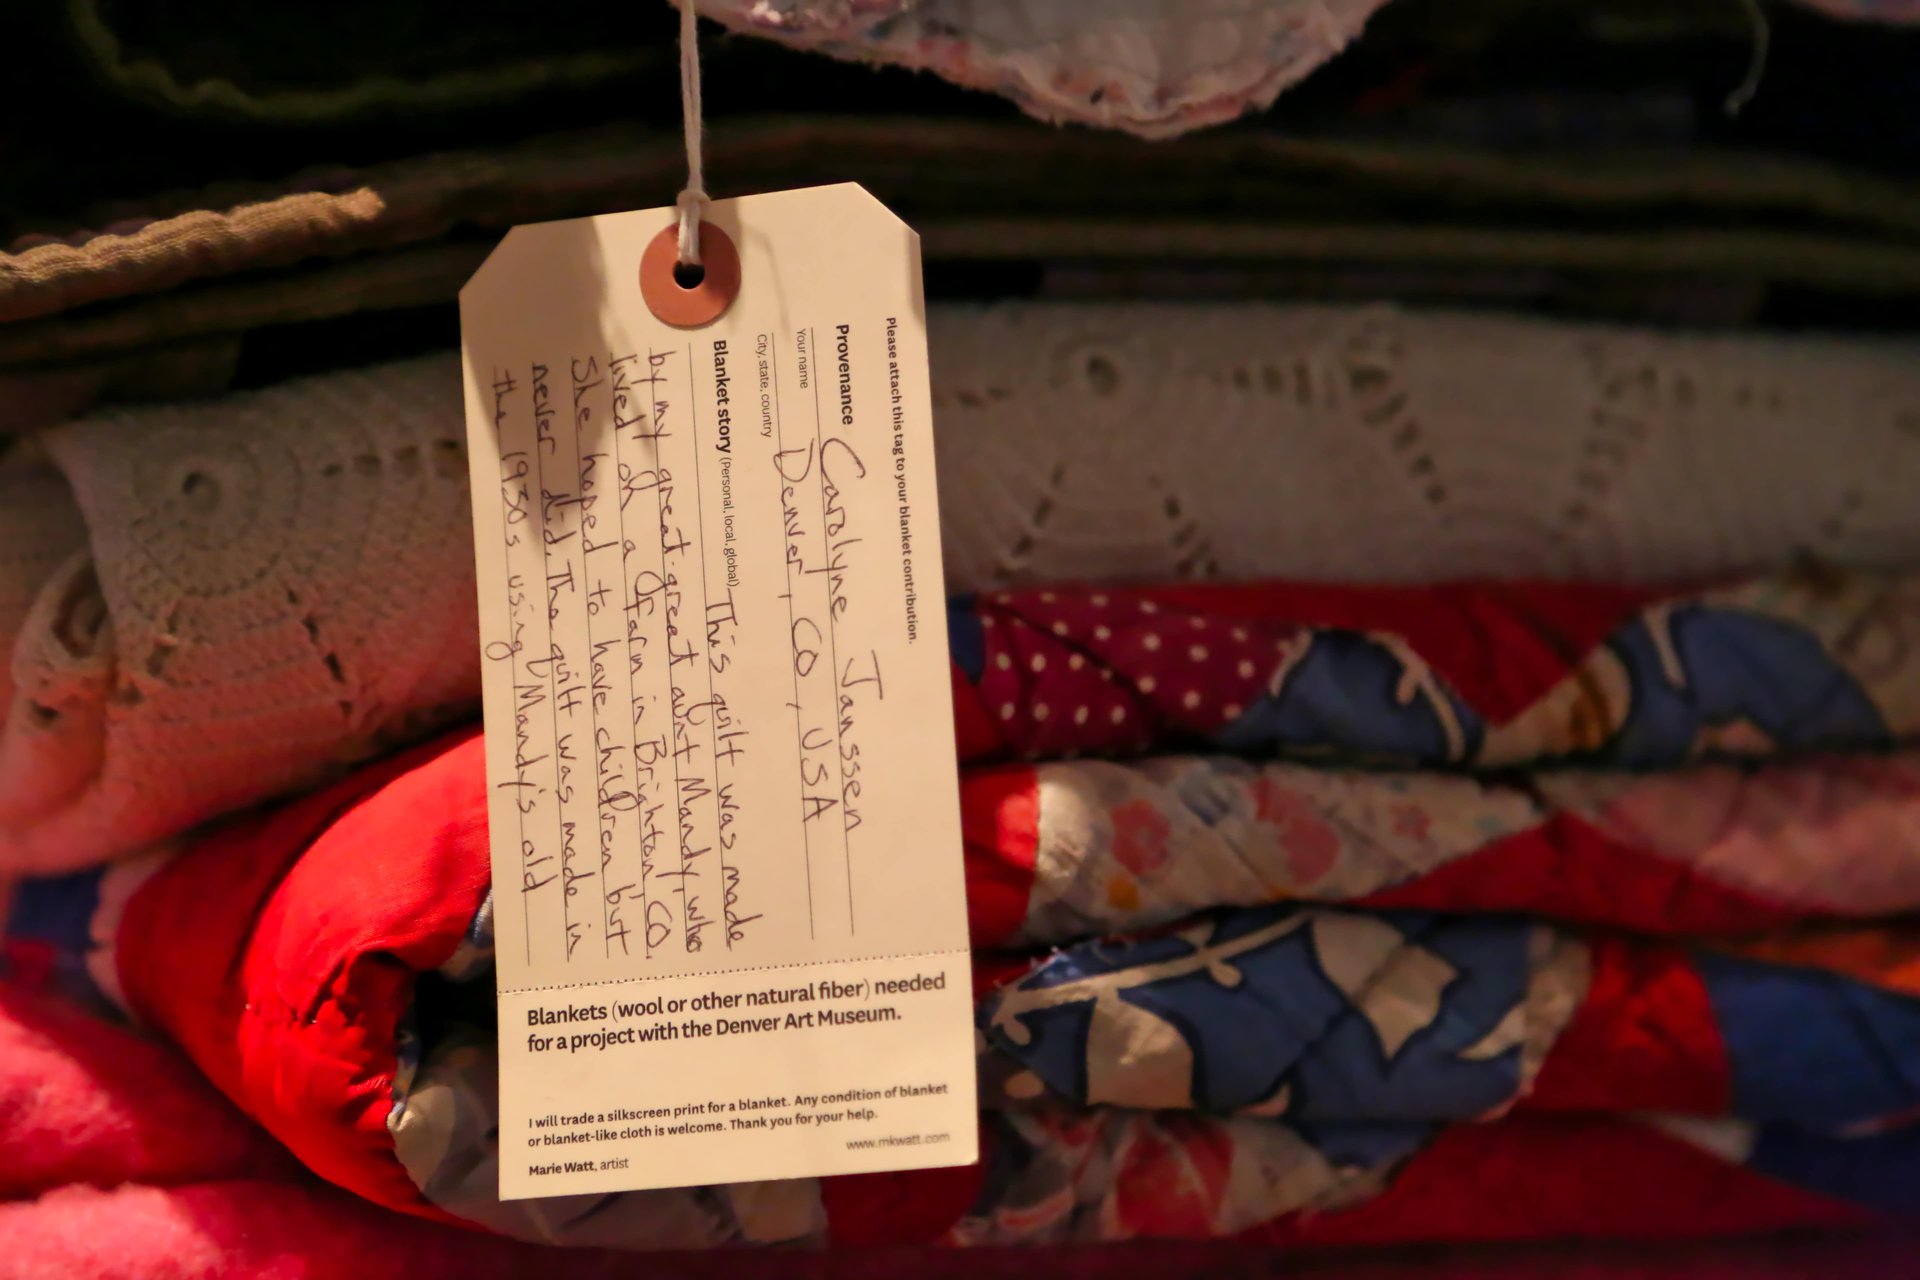 Please attach this tag to your blanket contribution.
Provenance
Your name Carolyne Janssen
City, state, country Denver, CO, USA
Blanket story (Personal, local, global) This quilt was made
by my great-great aunt Mandy, who
lived on a farm in Brighton, CO.
She hoped to have children but
never did. The quilt was made in
the 1930s using Mandy's old
Blankets (wool or other natural fiber) needed
for a project with the Denver Art Museum.
I will trade a silkscreen print for a blanket. Any condition of blanket
or blanket-like cloth is welcome. Thank you for your help.
www.mkwatt.com
Marie Watt, artist